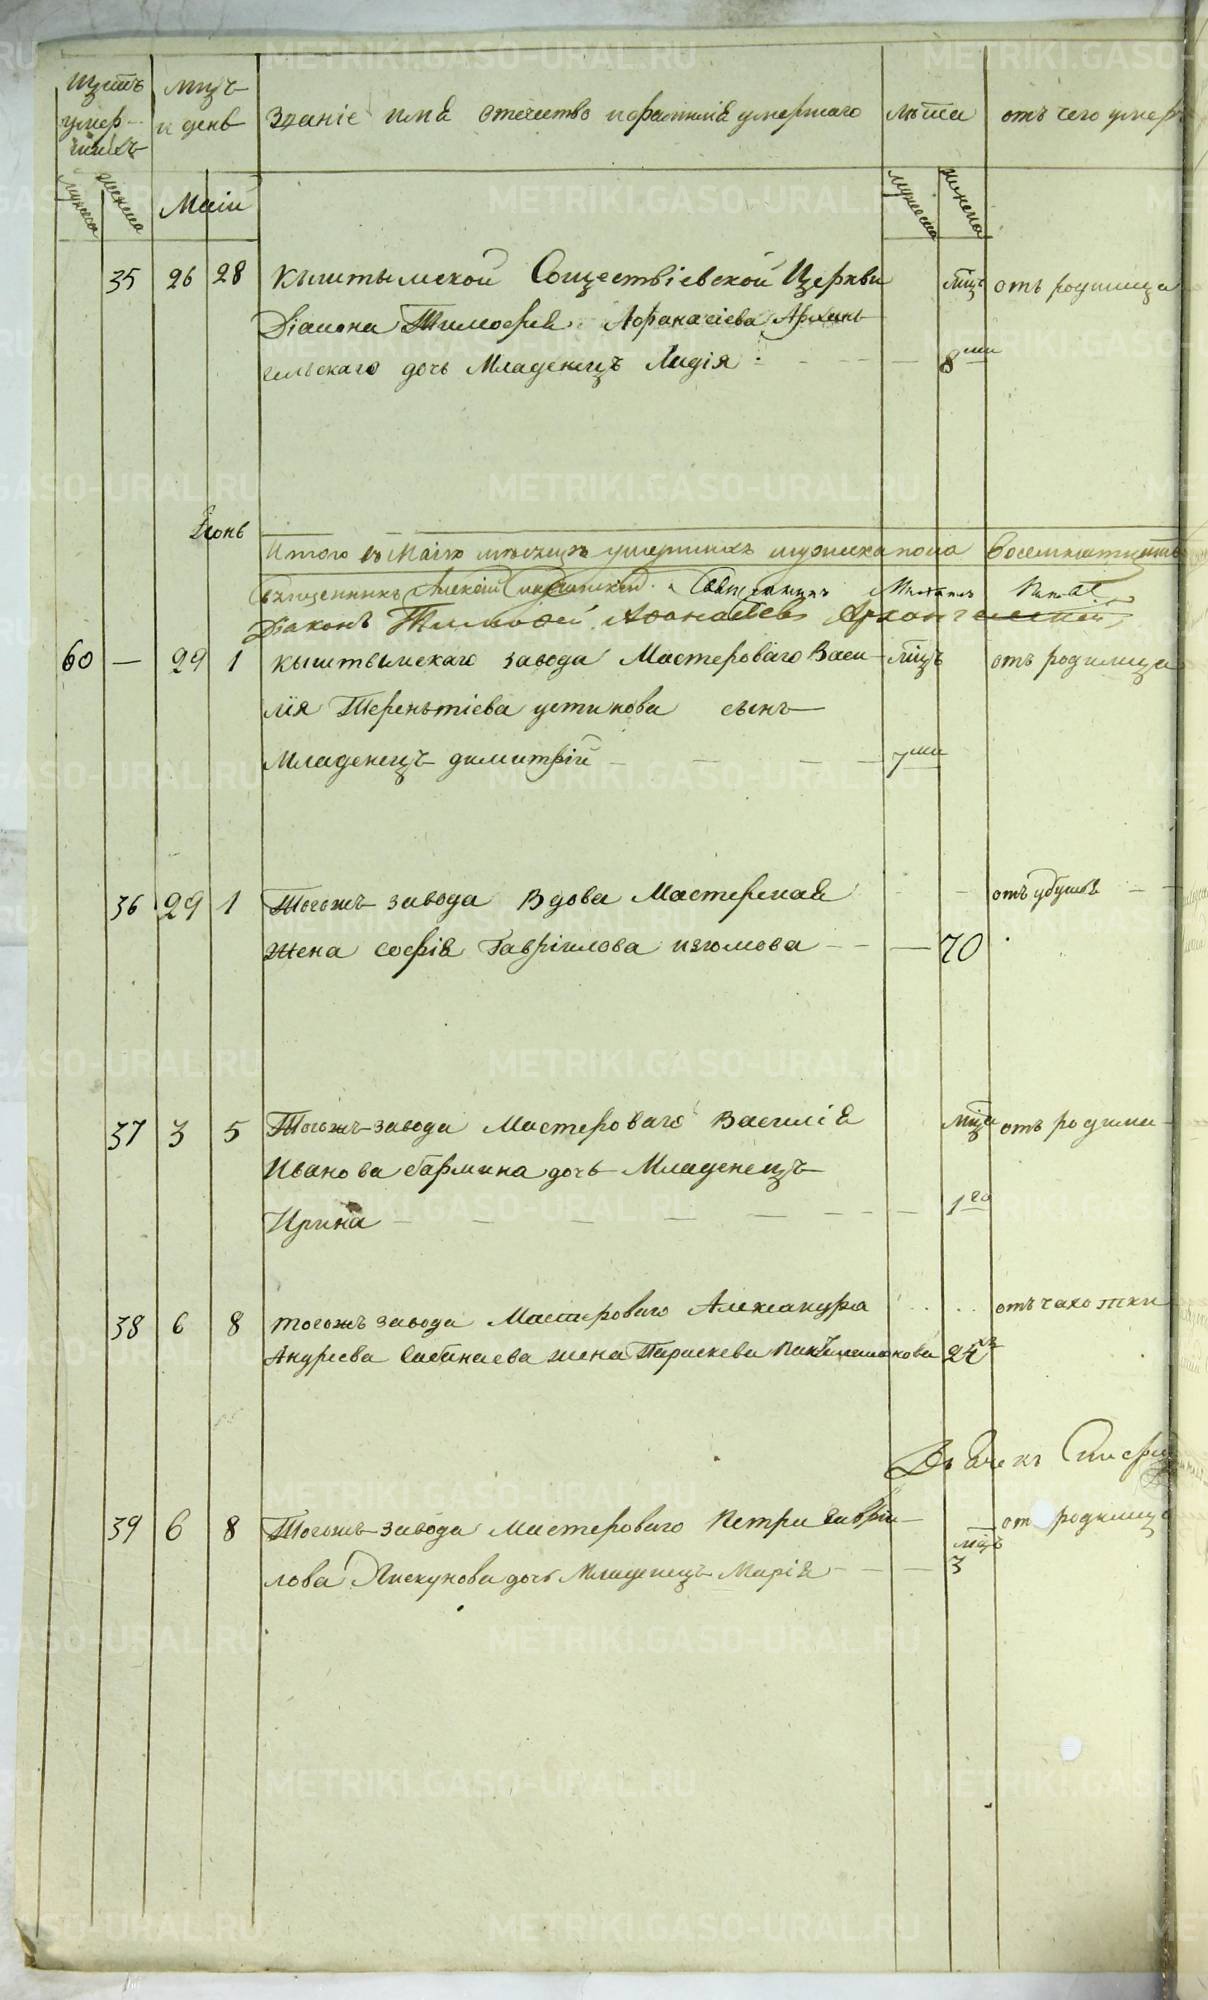 Щетъ умер- шихъ
мцъ и день
Званіе имя отечество и фамилія умершаго
лѣта
отъ чего умеръ
мужеска
женска
Маій
мужеска
женска
35 26 28 Кыштымской Сошествіевской Церкви мцъ отъ родимца
Діакона Тимофея Афанасіева Архан-
гельскаго дочь Младенецъ Лидія 8ми
Іюнь
Итого въ Маіѣ мѣсяцѣ умершихъ мужеска пола
Священникъ Алексій Священникъ
Діаконъ Тимофей Афонасіевъ Архангельской
60 — 29 1 Кыштымскаго завода Мастероваго Васи- мцъ отъ родимца
лія Терентіева устинова сынъ
Младенецъ димитрій 7ми
36 29 1 Тогожъ завода Вдова Мастерская отъ удушья
жена софія Гавріилова изюмова 70
37 3 5 Тогожъ завода Мастероваго Василія мцъ отъ родими-
Иванова Гармина дочь Младенецъ
Ирина 1го
38 6 8 тогожъ завода Мастероваго Александра отъ чахотки
Андреева жена Параскева 24хъ
39 6 8 Тогожъ завода Мастероваго Петра Гаврі- от родимца
лова Пискунова дочь Младенецъ Марія мцъ 3
METRIKI.GASO-URAL.RU